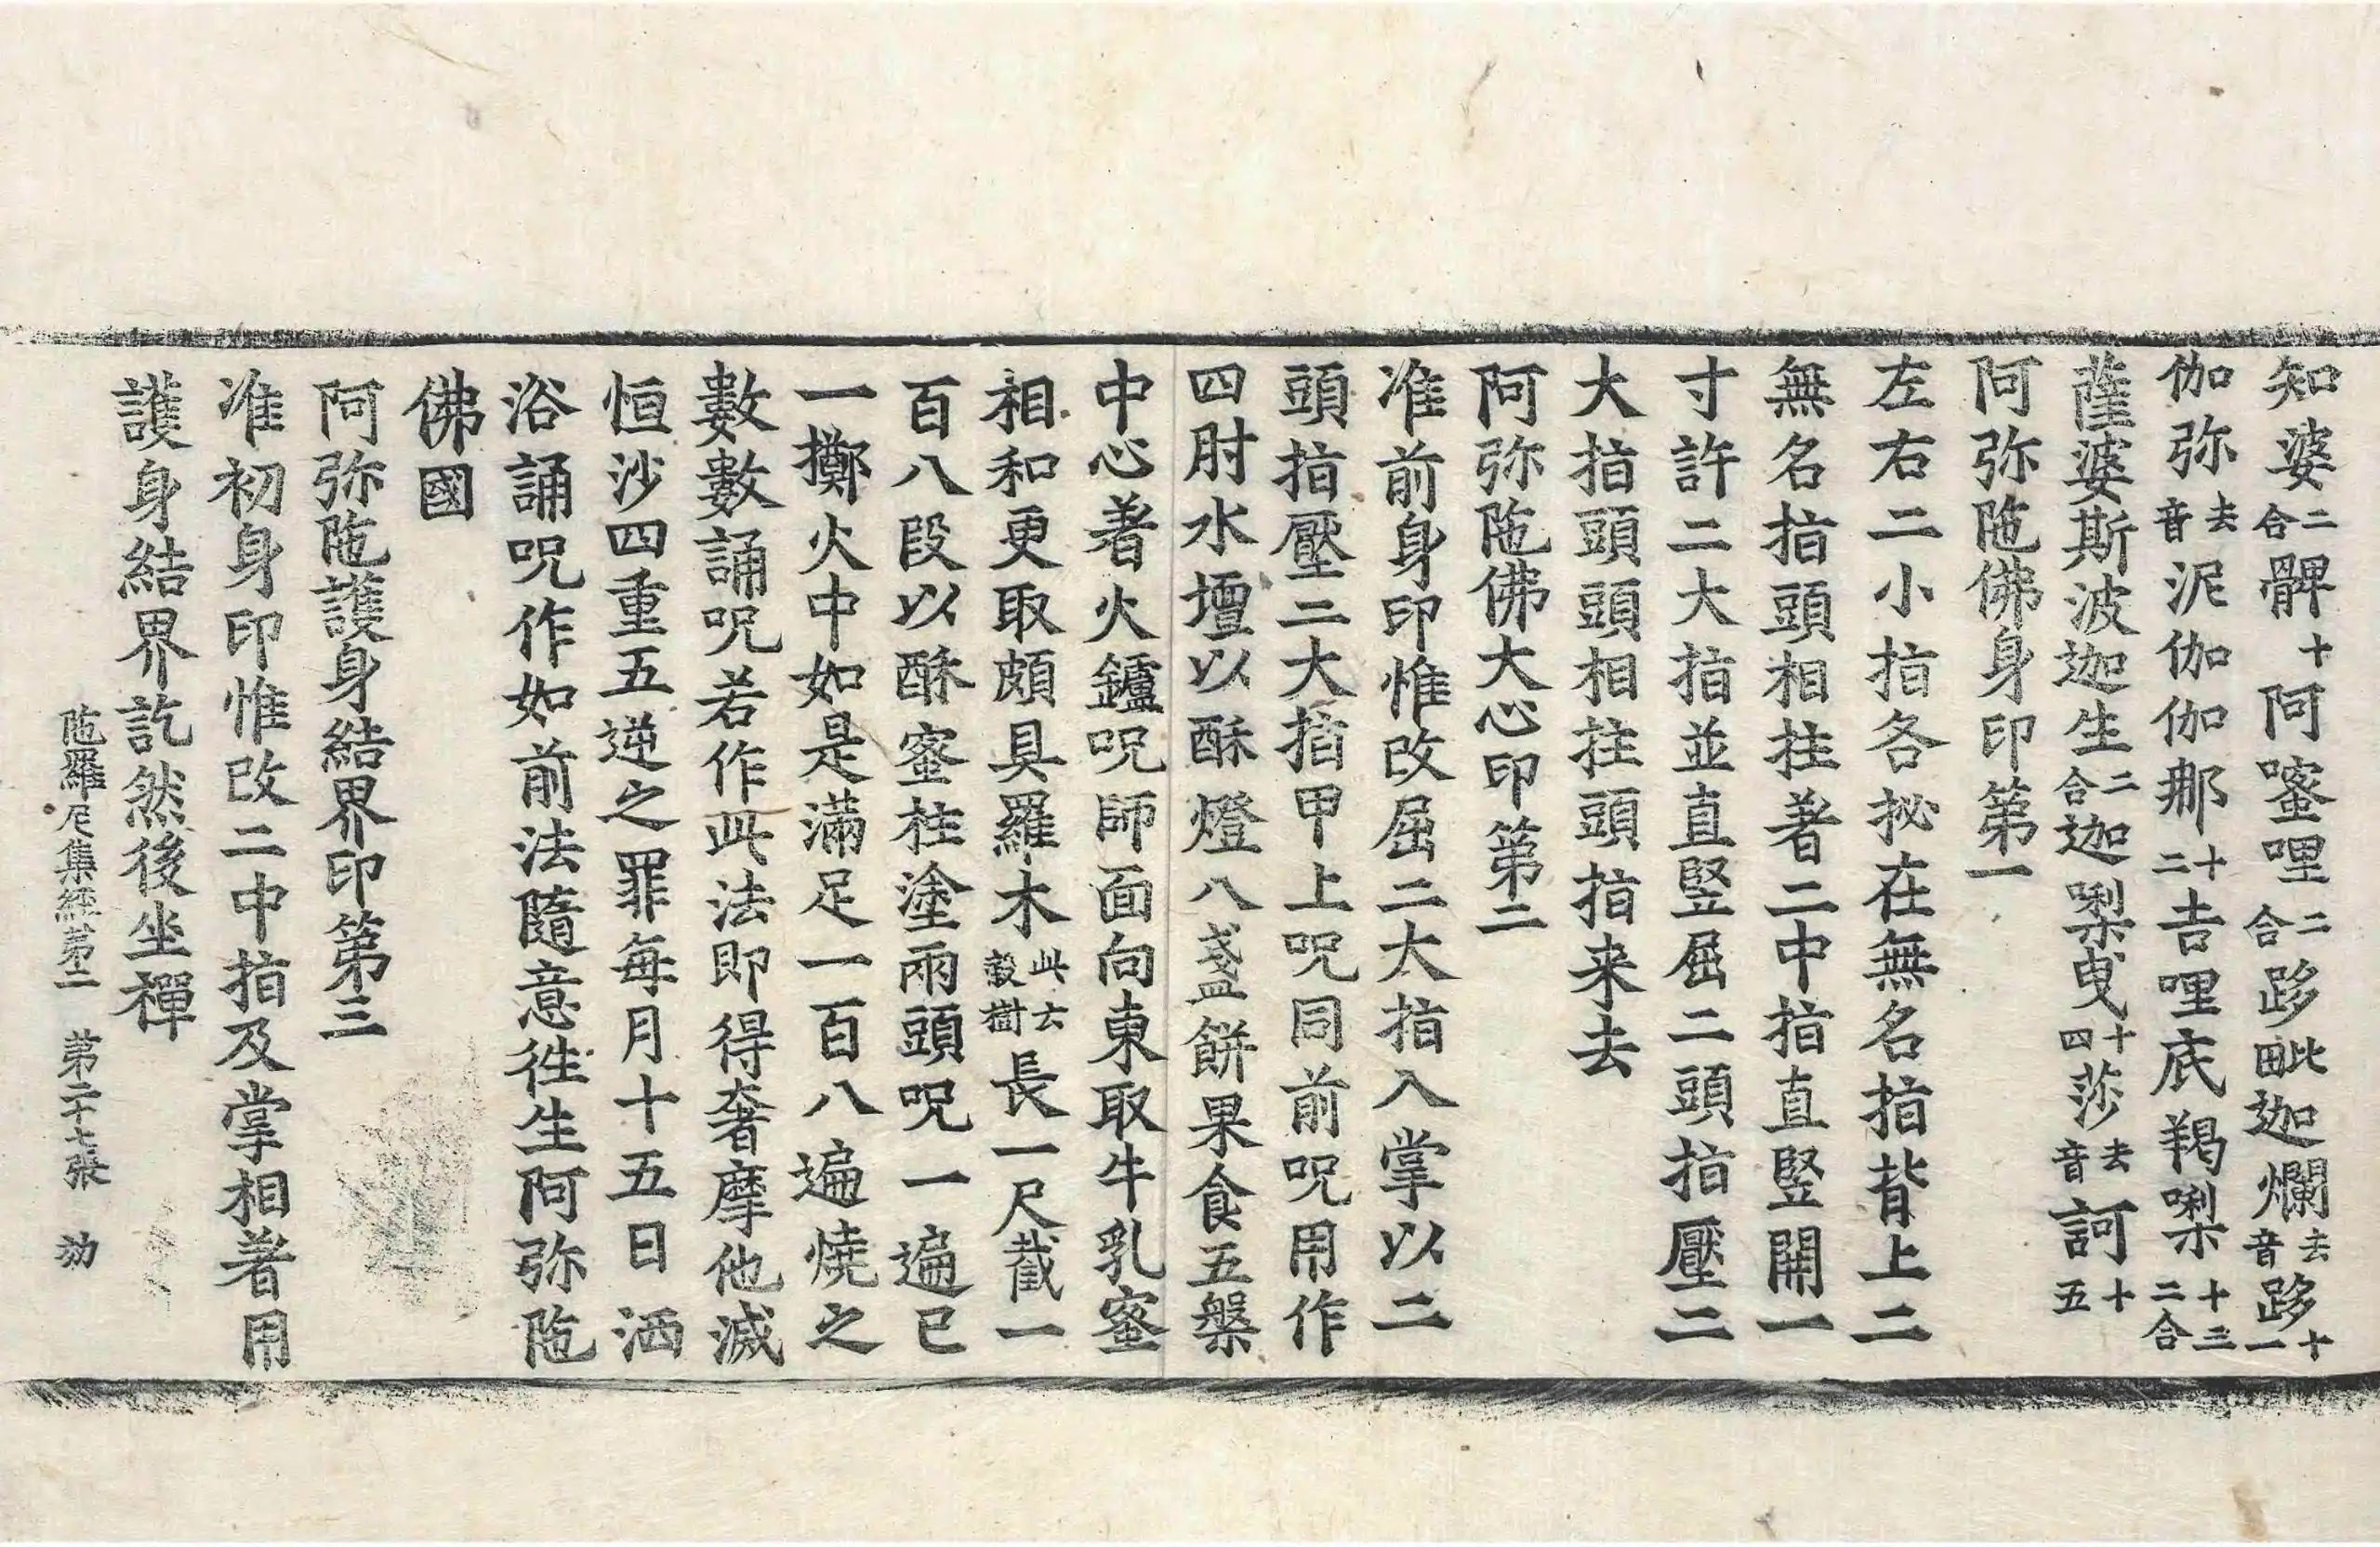 知婆二合髀十阿嚰哩二合跢比田迦爛去音跢十一
伽弥去音泥伽伽那十二吉哩底羯㗚十三二合
薩婆斯波迦生二合迦㗚曳十四莎去音訶十五
阿弥陁佛身印第一
左右二小指各拟在無名指背上二
無名指頭相拄著二中指直竪開一
寸許二大指並直竪屈二頭指壓二
大指頭頭相拄頭指来去
阿弥陁佛大心印第二
准前身印惟改屈二大指入掌以二
頭指壓二大指甲上呪同前呪用作
四肘水壇以酥燈八盞餅果食五槃
中心著火鑪呪師面向東取牛乳蜜
相和更取頗具羅木此云穀樹長一尺截一
百八段以酥蜜柱塗兩頭呪一遍已
一擲火中如是滿足一百八遍燒之
數數誦呪若作此法即得奢摩他滅
恒沙四重五逆之罪每月十五日洒
浴誦呪作如前法隨意徃生阿弥陁
佛國
阿弥陁護身結界印第三
准初身印惟改二中指及掌相著用
護身結界訖然後坐禪
陁羅尼集經第二　第二十七張　効